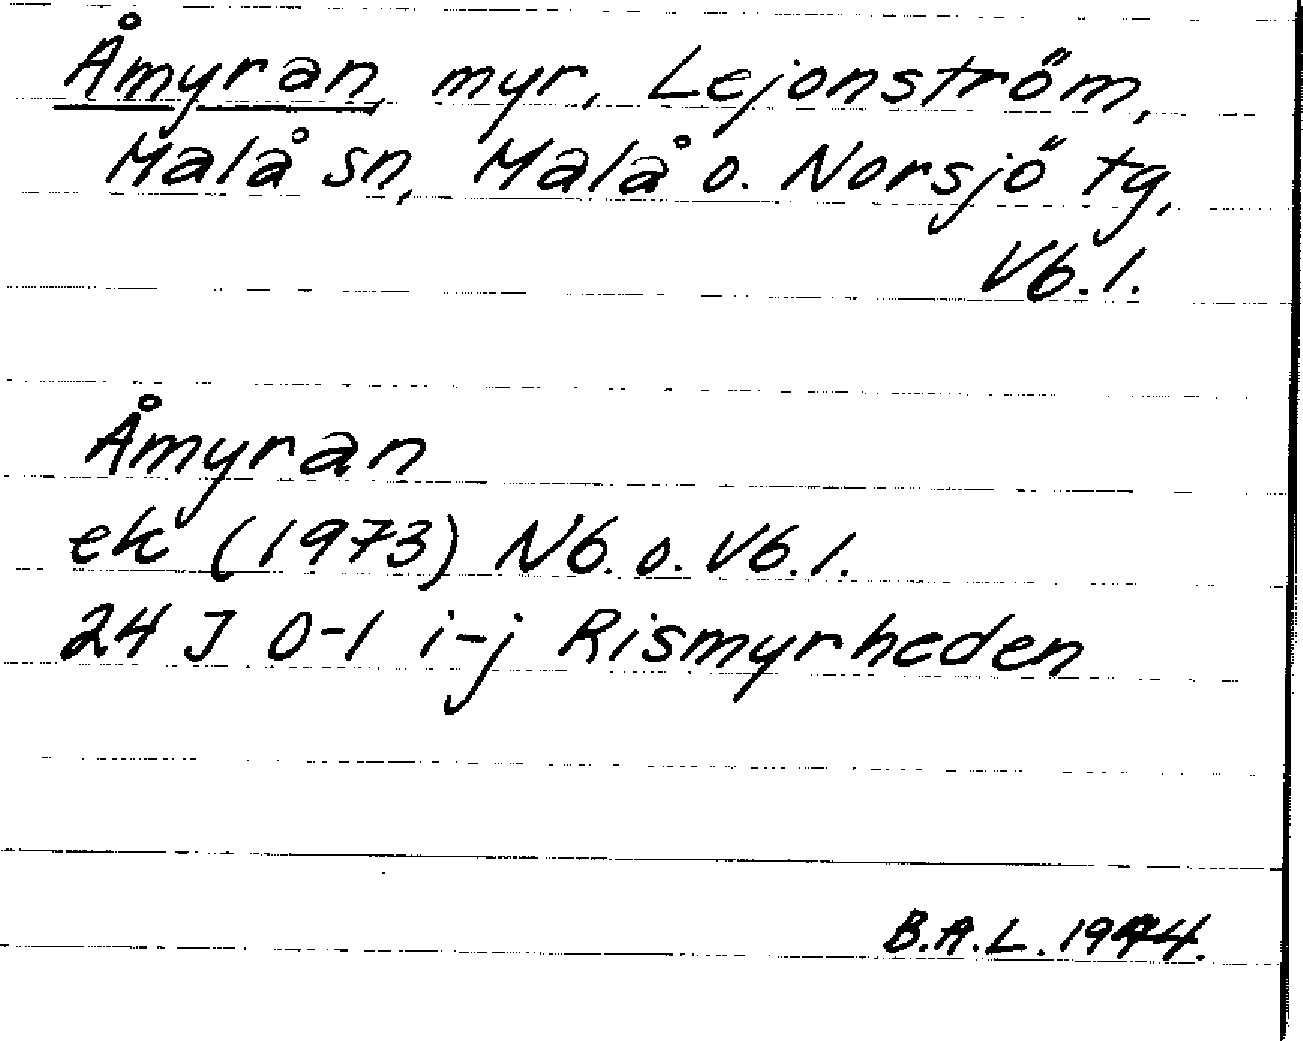 Åmyran, myr, Lejonström,
Malå sn, Malå o. Norsjö tg,
Vb.l.
Åmyran
ek (1973) Nb. o. Vb.l.
24 J 0-1 i-j Rismyrheden
B.A.L.